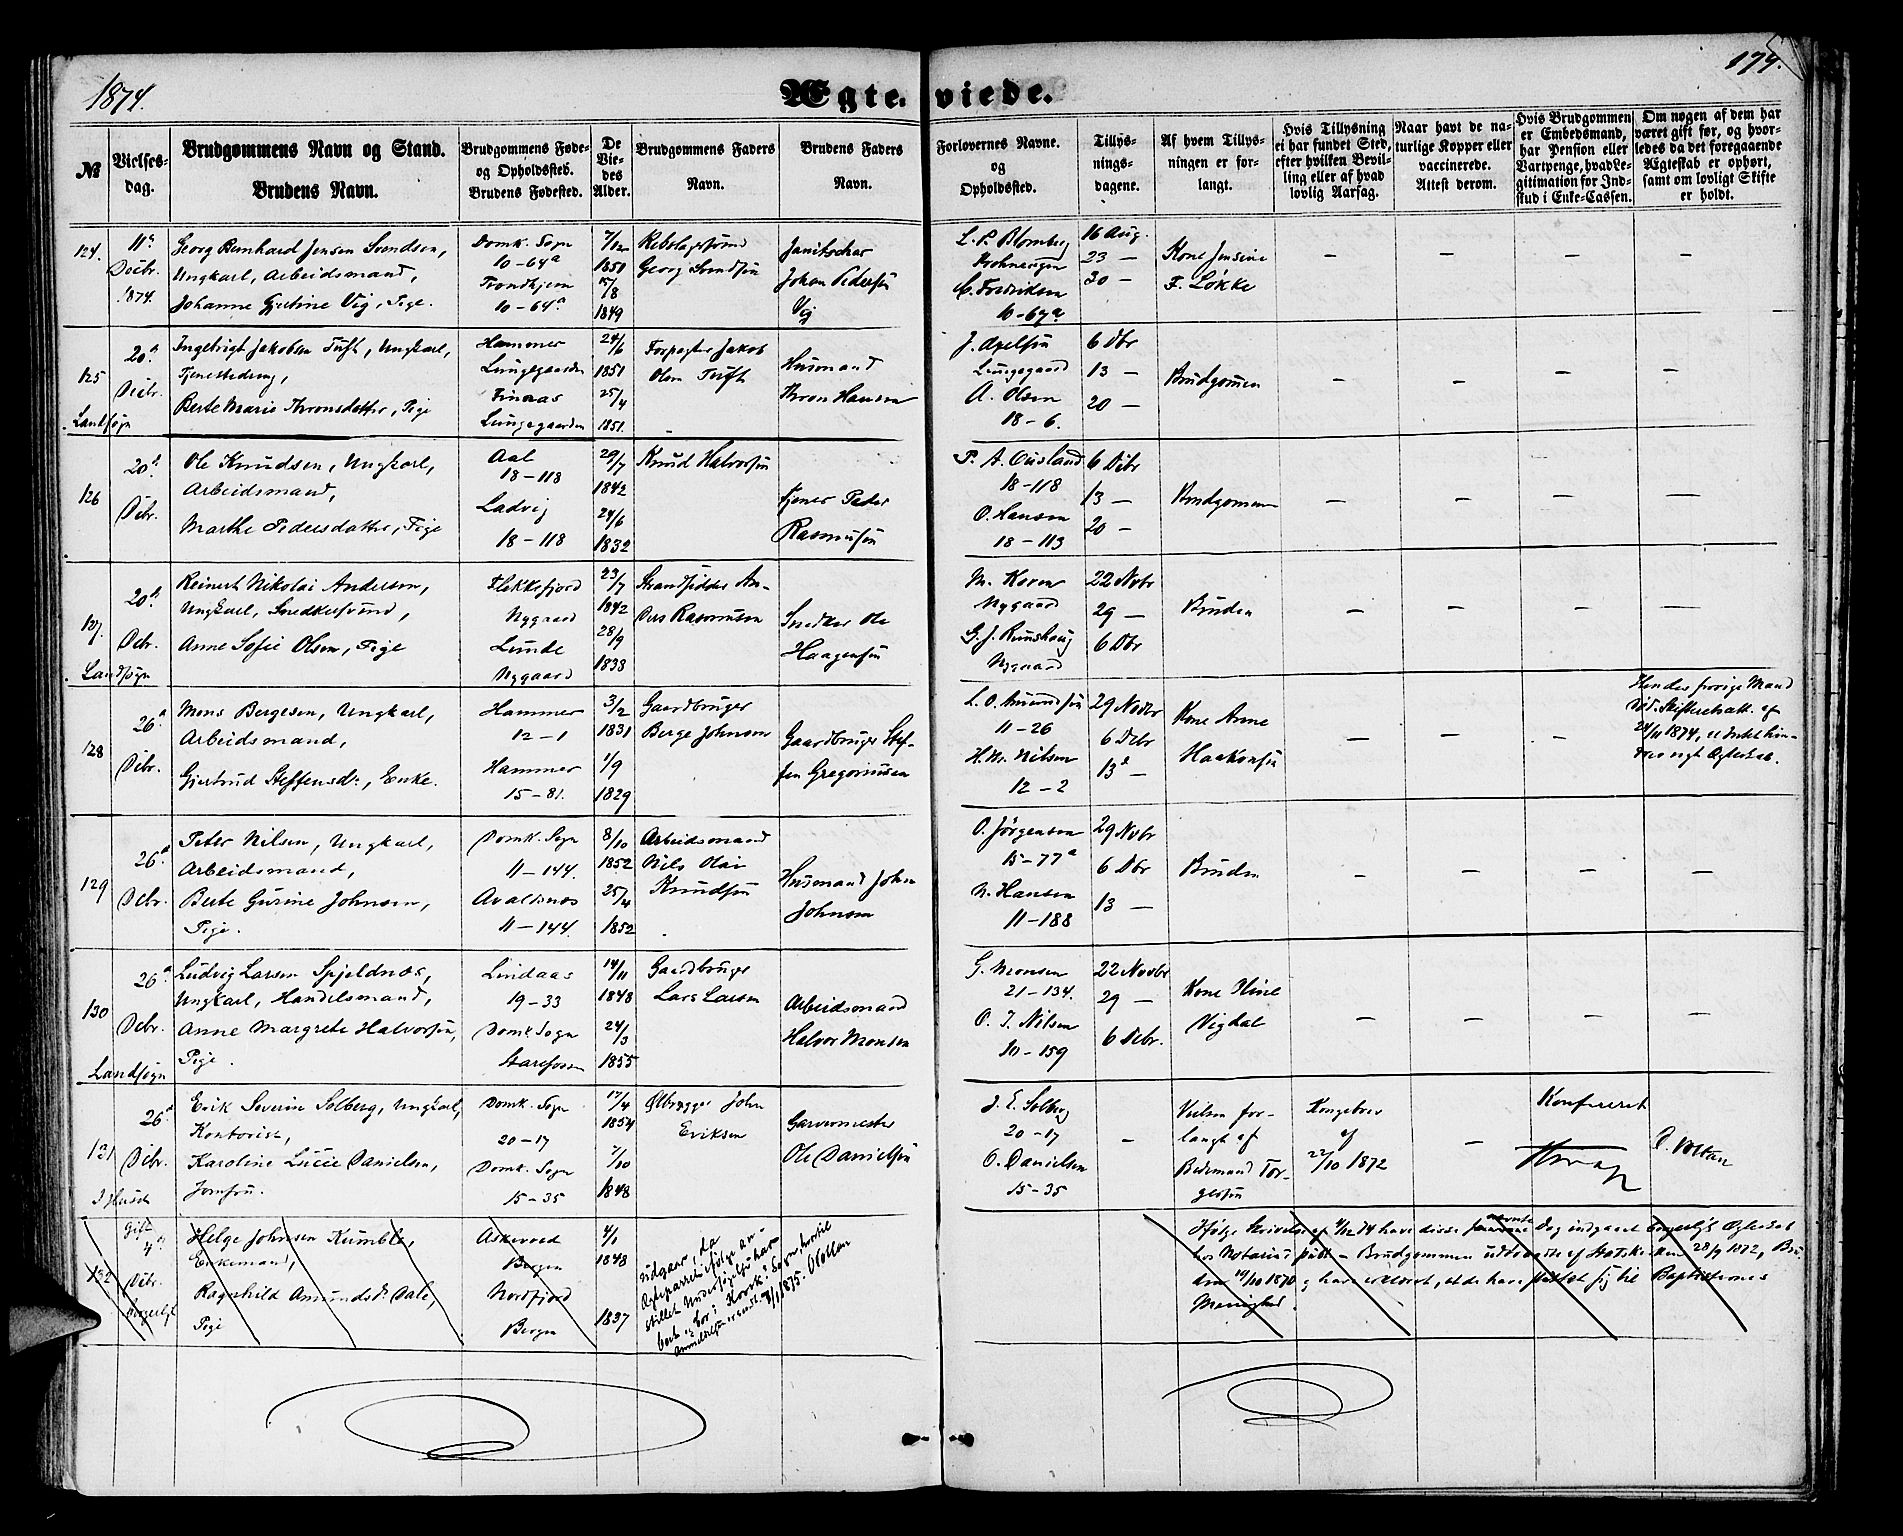 1874.
Ægte-viede.
174.
№
Vielses-
dag.
Brudgommens Navn og Stand.
Brudens Navn.
Brudgommens Føde-
og Opholdssted.
Brudens Fødested.
De
Vie-
des
Alder.
Brudgommens Faders
Navn.
Brudens Faders
Navn.
Forlovernes Navne.
og
Opholdssted.
Tillys-
nings-
dagene.
Af hvem Tillys-
ningen er for-
langt.
Hvis Tillysning
ei har fundet Sted,
efter hvilken Bevil-
ling eller af hvad
lovlig Aarsag.
Naar havt de na-
turlige Kopper eller
vaccinerede.
Attest derom.
Hvis Brudgommen
er Embedsmand,
har Pension eller
Vartpenge, hvad Le-
gitimation for Ind-
skud i Enke-Cassen.
Om nogen af dem har
været gift før, og hvor-
ledes da det foregaaende
Ægteskab er ophørt,
samt om lovligt Skifte
er holdt.
124.
11te
Decbr.
1874.
Georg Bernhard Jensen Svendsen,
Ungkarl, Arbeidsmand,
Johanne Gjertine Vig, Pige.
Domk. Sogn
10-64a
Trondhjem
10-64a
7/12
1851
15/8
1849
Rebslagersvend
Georg Svendsen
Janitschar
Johan Pedersen
Vig
L. P. Blomberg
C. Fredriksen
10-67a
16 Aug.
23 —
30 —
Kone Jensine
F. Løkke
125
20de
Decbr.
Landsogn
Ingebrigt Jakobsen Tuft, Ungkarl,
Tjenestedreng,
Berte Marie Thronsdatter, Pige
Hammer
Lungegaarden
Finnaas
Lungegaarden
24/6
1851
25/4
1851.
Forpagter Jakob
Olsen Tuft
Husmand
Thron Hansen
J. Axelsen
Lungegaard
A. Olsen
18-6.
6 Dbr
13 —
20 —
Brudgommen
126
20de
Decbr.
Ole Knudsen, Ungkarl,
Arbeidsmand,
Marthe Pedersdatter, Pige
Aal
18-118
Ladvig
18-118
29/7
1842
24/6
1832
Knud Halvorsen
Tjener Peder
Rasmussen
P. A. Ousland
18-118
O. Hansen
18-113
6 Decbr
13 —
20 —
Brudgommen
127.
20de
Decbr.
Landsogn
Reinert Nikolai Andersen,
Ungkarl, Snedkersvend,
Anne Sofie Olsen, Pige
Flekkefjord
Nygaard
Lunde
Nygaard
23/7
1842
28/9
1838
Strandsidder An-
ders Rasmussen
Snedker Ole
Haagensen
M. Koven
Nygaard
G. J. Runshaug
Nygaard
22 Novbr
29 —
6 Dbr
Bruden
128
26de
Decbr.
Mons Bergesen, Ungkarl,
Arbeidsmand,
Gjertrud Steffensdr, Enke.
Hammer
12-1
Hammer
15-81.
3/2
1831
1/9
1829
Gaardbruger
Berge Johnsen
Gaardbruger Stef-
fen Gregoriussen
L. O. Amundsen
11-26
H. M. Nilsen
12-2
29 Novbr
6 Decbr
13de —
Kone Anne
Haakonsen
Hendes forrige Mand
død. Skifteretsatt. af
24/11 1874, er Intet hin-
drer nyt Ægteskab.
129
26de
Decbr.
Peter Nilsen, Ungkarl,
Arbeidsmand,
Berte Gurine Johnsen,
Pige.
Domk. Sogn
11-144.
Avaldsnes
11-144.
8/10
1852
25/4
1852
Arbeidsmand
Nils Olai
Knudsen
Husmand John
Johnsen
O. Jørgensen
15-77a
N. Hansen
11-188
29 Novbr
6 Dbr
13 —
Bruden
130
26de
Decbr.
Landsogn
Ludvig Larsen Spjeldnæs,
Ungkarl, Handelsmand,
Anne Margrete Halvorsen,
Pige.
Lindaas
19-33
Domk. Sogn
Starefossen
14/11
1848
24/3
1855
Gaardbruger
Lars Larsen
Arbeidsmand
Halvor Monsen
G. Monsen
21-134.
O. J. Nilsen
10-159
22 Novbr
29 —
6 Decbr.
Kone Stine
Vigdal
131
26de
Decbr.
I Huset
Erik Severin Solberg, Ungkarl,
Kontorist,
Karoline Lucie Danielsen,
Jomfru.
Domk. Sogn
20-17
Domk. Sogn
15-35
17/4
1854
7/10
1848
Ølbrygger John
Eriksen
Garvermester
Ole Danielsen
J. E. Solberg
20-17
O. Danielsen
15-35
Vielsen for-
langt af
Bedemand Tor-
gersen
Kongebrev
af
22/10 1872
Konfereret
132
Gifte
4de
Decbr.
borgerligt
Helge Johnsen Kumble,
Enkemand,
Ragnhild Amundsdr Dale,
Pige
Askevold
Bergen
Nordfjord
Bergen
4/1
1848
1837
udgaar, da
Ægteparret ifølge an-
stillet Undersøgelse har
boet og bor i Korsk. Sogn hvortil
Anmeldelsen er sendt. 8/1 1875.
Ifølge Skrivelse af 4/12 74 have disse nævnte Dag indgaaet borgerligt Ægteskab
hos Notarius publ. — Brudgommen udtraadte af Statskirken 28/9 1872, Bru-
den 14/10 1870 og have erklæret, at de have sluttet sig til Baptisternes
Menighed.